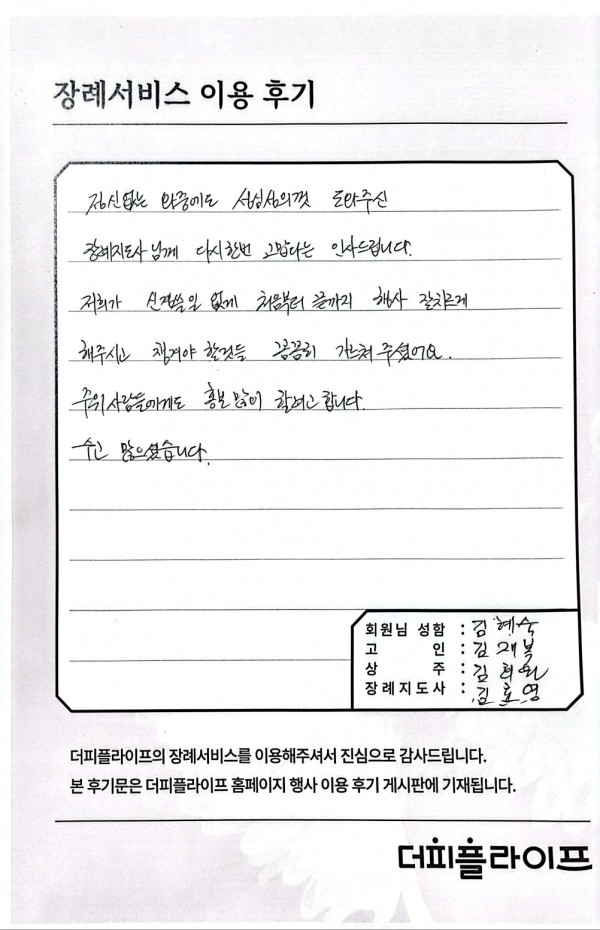 장례서비스 이용 후기
정신없는 와중에도 성심성의껏 도와주신
장례지도사님께 다시한번 고맙다는 인사드립니다.
저희가 신경쓸일 없게 처음부터 끝까지 행사 잘치르게
해주시고 챙겨야 할것들 꼼꼼히 가르쳐 주셨어요.
주위사람들에게도 홍보 많이 할려고 합니다.
수고 많으셨습니다.
회원님 성함 : 김혜숙
고 인 : 김재복
상 주 : 김
장례지도사 : 김호영
더피플라이프의 장례서비스를 이용해주셔서 진심으로 감사드립니다.
본 후기문은 더피플라이프 홈페이지 행사 이용 후기 게시판에 기재됩니다.
더피플라이프